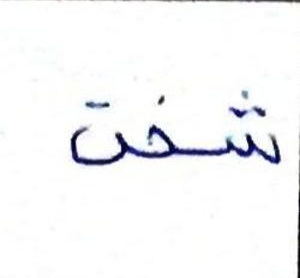 شخت